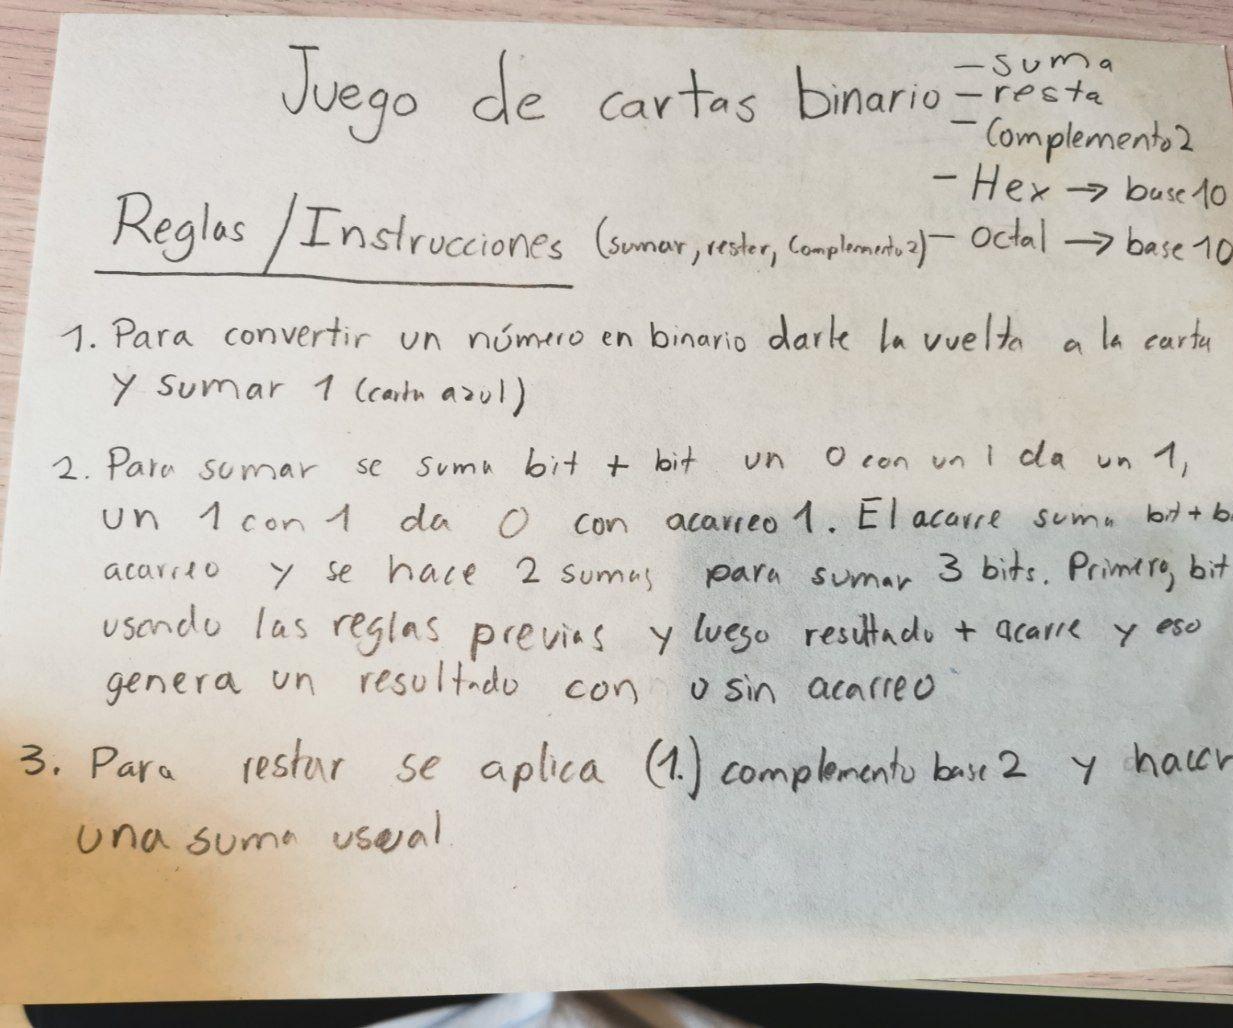 Juego de cartas binario
- suma
- resta
- Complemento 2
- Hex → base 10
- Octal → base 10
Reglas / Instrucciones (sumar, rester, Complemento 2)
1. Para convertir un número en binario darle la vuelta a la carta
y sumar 1 (carta azul)
2. Para sumar se suma bit + bit un 0 con un 1 da un 1,
un 1 con 1 da 0 con acarreo 1. El acarre suma bit + b
acarreo y se hace 2 sumas para sumar 3 bits. Primero, bit
usando las reglas previas y luego resultado + acarre y eso
genera un resultado con o sin acarreo
3. Para restar se aplica (1.) complemento base 2 y hacer
una suma usual.